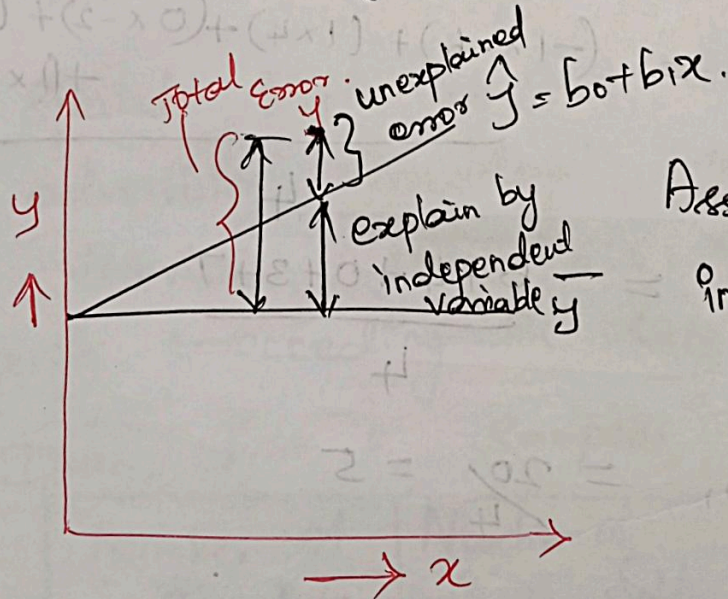 Total Error.
y
unexplained
error ŷ = b₀+b₁x.
y
explain by
independent
variable y̅
Ass
in
x